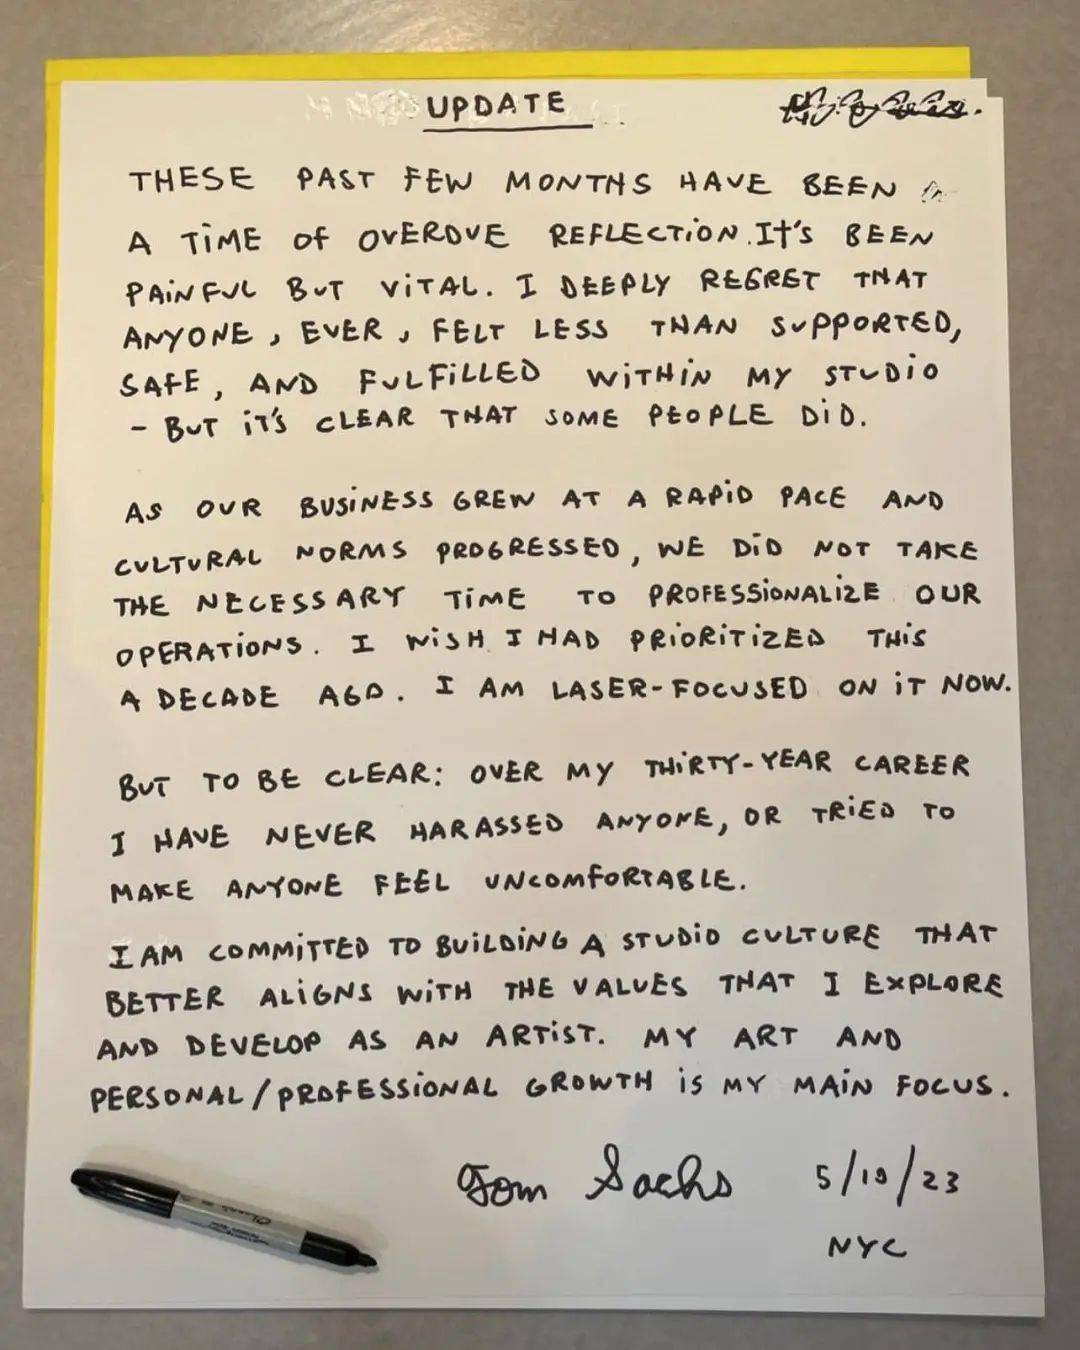 UPDATE
THESE PAST FEW MONTHS HAVE BEEN
A TIME OF OVERDUE REFLECTION. IT'S BEEN
PAINFUL BUT VITAL. I DEEPLY REGRET THAT
ANYONE, EVER, FELT LESS THAN SUPPORTED,
SAFE, AND FULFILLED WITHIN MY STUDIO
- BUT IT'S CLEAR THAT SOME PEOPLE DID.
AS OUR BUSINESS GREW AT A RAPID PACE AND
CULTURAL NORMS PROGRESSED, WE DID NOT TAKE
THE NECESSARY TIME TO PROFESSIONALIZE OUR
OPERATIONS. I WISH I HAD PRIORITIZED THIS
A DECADE AGO. I AM LASER-FOCUSED ON IT NOW.
BUT TO BE CLEAR: OVER MY THIRTY-YEAR CAREER
I HAVE NEVER HARASSED ANYONE, OR TRIED TO
MAKE ANYONE FEEL UNCOMFORTABLE.
I AM COMMITTED TO BUILDING A STUDIO CULTURE THAT
BETTER ALIGNS WITH THE VALUES THAT I EXPLORE
AND DEVELOP AS AN ARTIST. MY ART AND
PERSONAL/PROFESSIONAL GROWTH IS MY MAIN FOCUS.
Tom Sachs 5/19/23
NYC
Sharpie